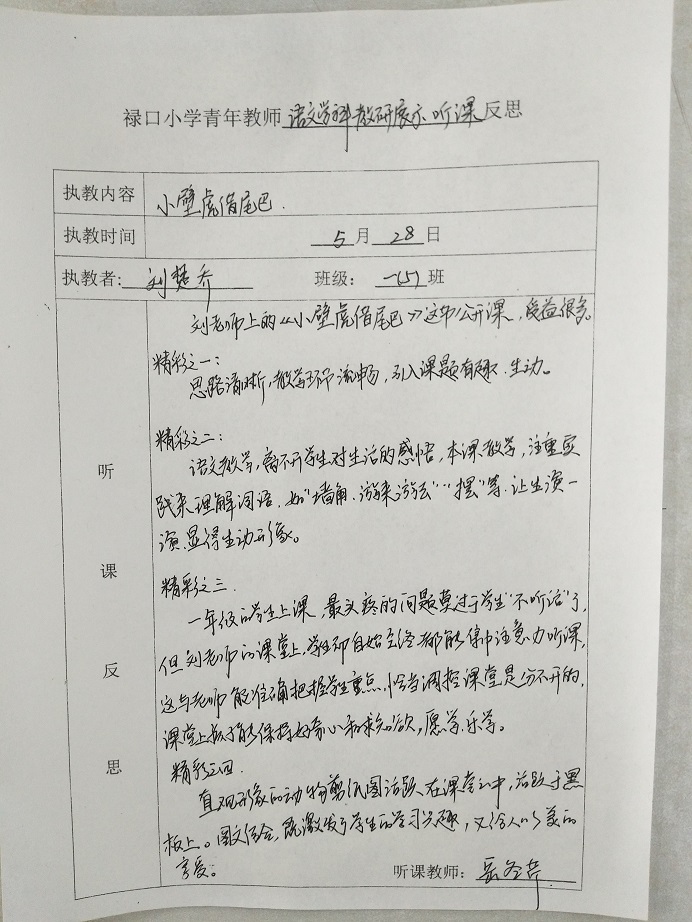 禄口小学青年教师语文学科教研展示听课反思
执教内容 小壁虎借尾巴.
执教时间 5月28日
执教者: 刘楚乔 班级: 一(5)班
听课反思
刘老师上的《小壁虎借尾巴》这节公开课,受益很多。
精彩之一:
思路清晰,教学环节流畅,引入课题有趣.生动。
精彩之二:
语文教学,离不开学生对生活的感悟,本课教学,注重实
践来理解词语.如"墙角、游来游去""摆"等.让生演一
演,显得生动形象。
精彩之三
一年级的学生上课,最头疼的问题莫过于学生"不听话"了,
但刘老师的课堂上,学生却自始至终都能集中注意力听课,
这与老师能准确把握学生重点,恰当调控课堂是分不开的,
课堂上孩子能保持好奇心和求知欲,愿学.乐学。
精彩之四
直观形象的动物剪纸图活跃在课堂之中,活跃于黑
板上。图文结合,既激发了学生的学习兴趣,又给人以美的
享受。
听课教师: